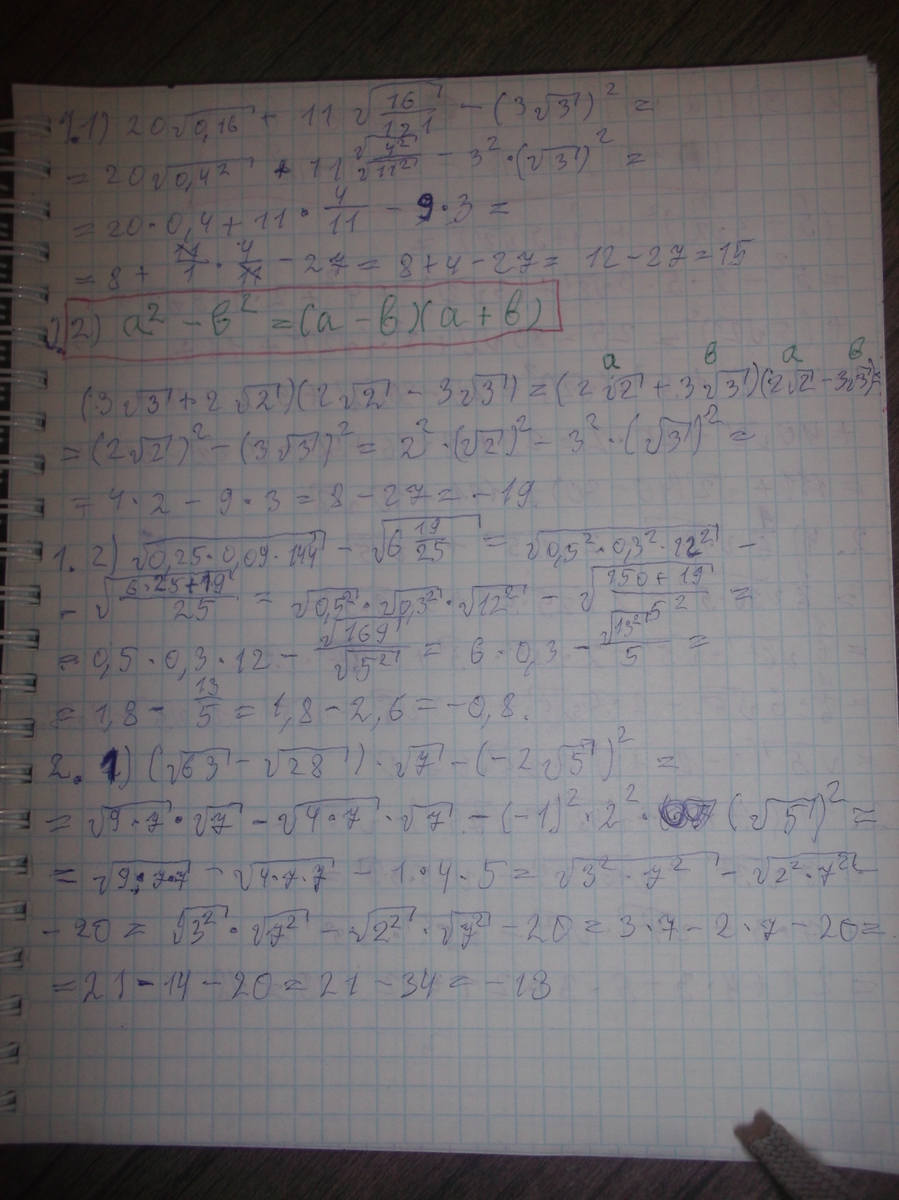 1.1) 20√0,16 + 11√(16/121) − (3√3)² =
= 20√0,4² + 11 √4²/√11² − 3²·(√3)² =
= 20·0,4 + 11·4/11 − 9·3 =
= 8 + 11/1·4/11 − 27 = 8+4−27 = 12−27=15
2) a² − b² = (a − b)(a + b)
a b a b
(3√3+2√2)(2√2 − 3√3) = (2√2 + 3√3)(2√2 − 3√3)=
= (2√2)² − (3√3)² = 2²·(√2)² − 3²·(√3)² =
= 4·2 − 9·3 = 8 − 27 = −19
1. 2) √(0,25·0,09·144) − √(6 19/25) = √(0,5²·0,3²·12²) −
− √((6·25+19)/25) = √0,5²·√0,3²·√12² − √((150+19)/5²) =
= 0,5·0,3·12 − √169/√5² = 6·0,3 − √13²/5 =
= 1,8 − 13/5 = 1,8 − 2,6 = −0,8.
2. 1) (√63 − √28)·√7 − (−2√5)² =
= √(9·7)·√7 − √(4·7)·√7 − (−1)²·2²·(√5)² =
= √(9·7·7) − √(4·7·7) − 1·4·5 = √(3²·7²) − √(2²·7²) −
− 20 = √3²·√7² − √2²·√7² − 20 = 3·7 − 2·7 − 20 =
= 21 − 14 − 20 = 21 − 34 = −13